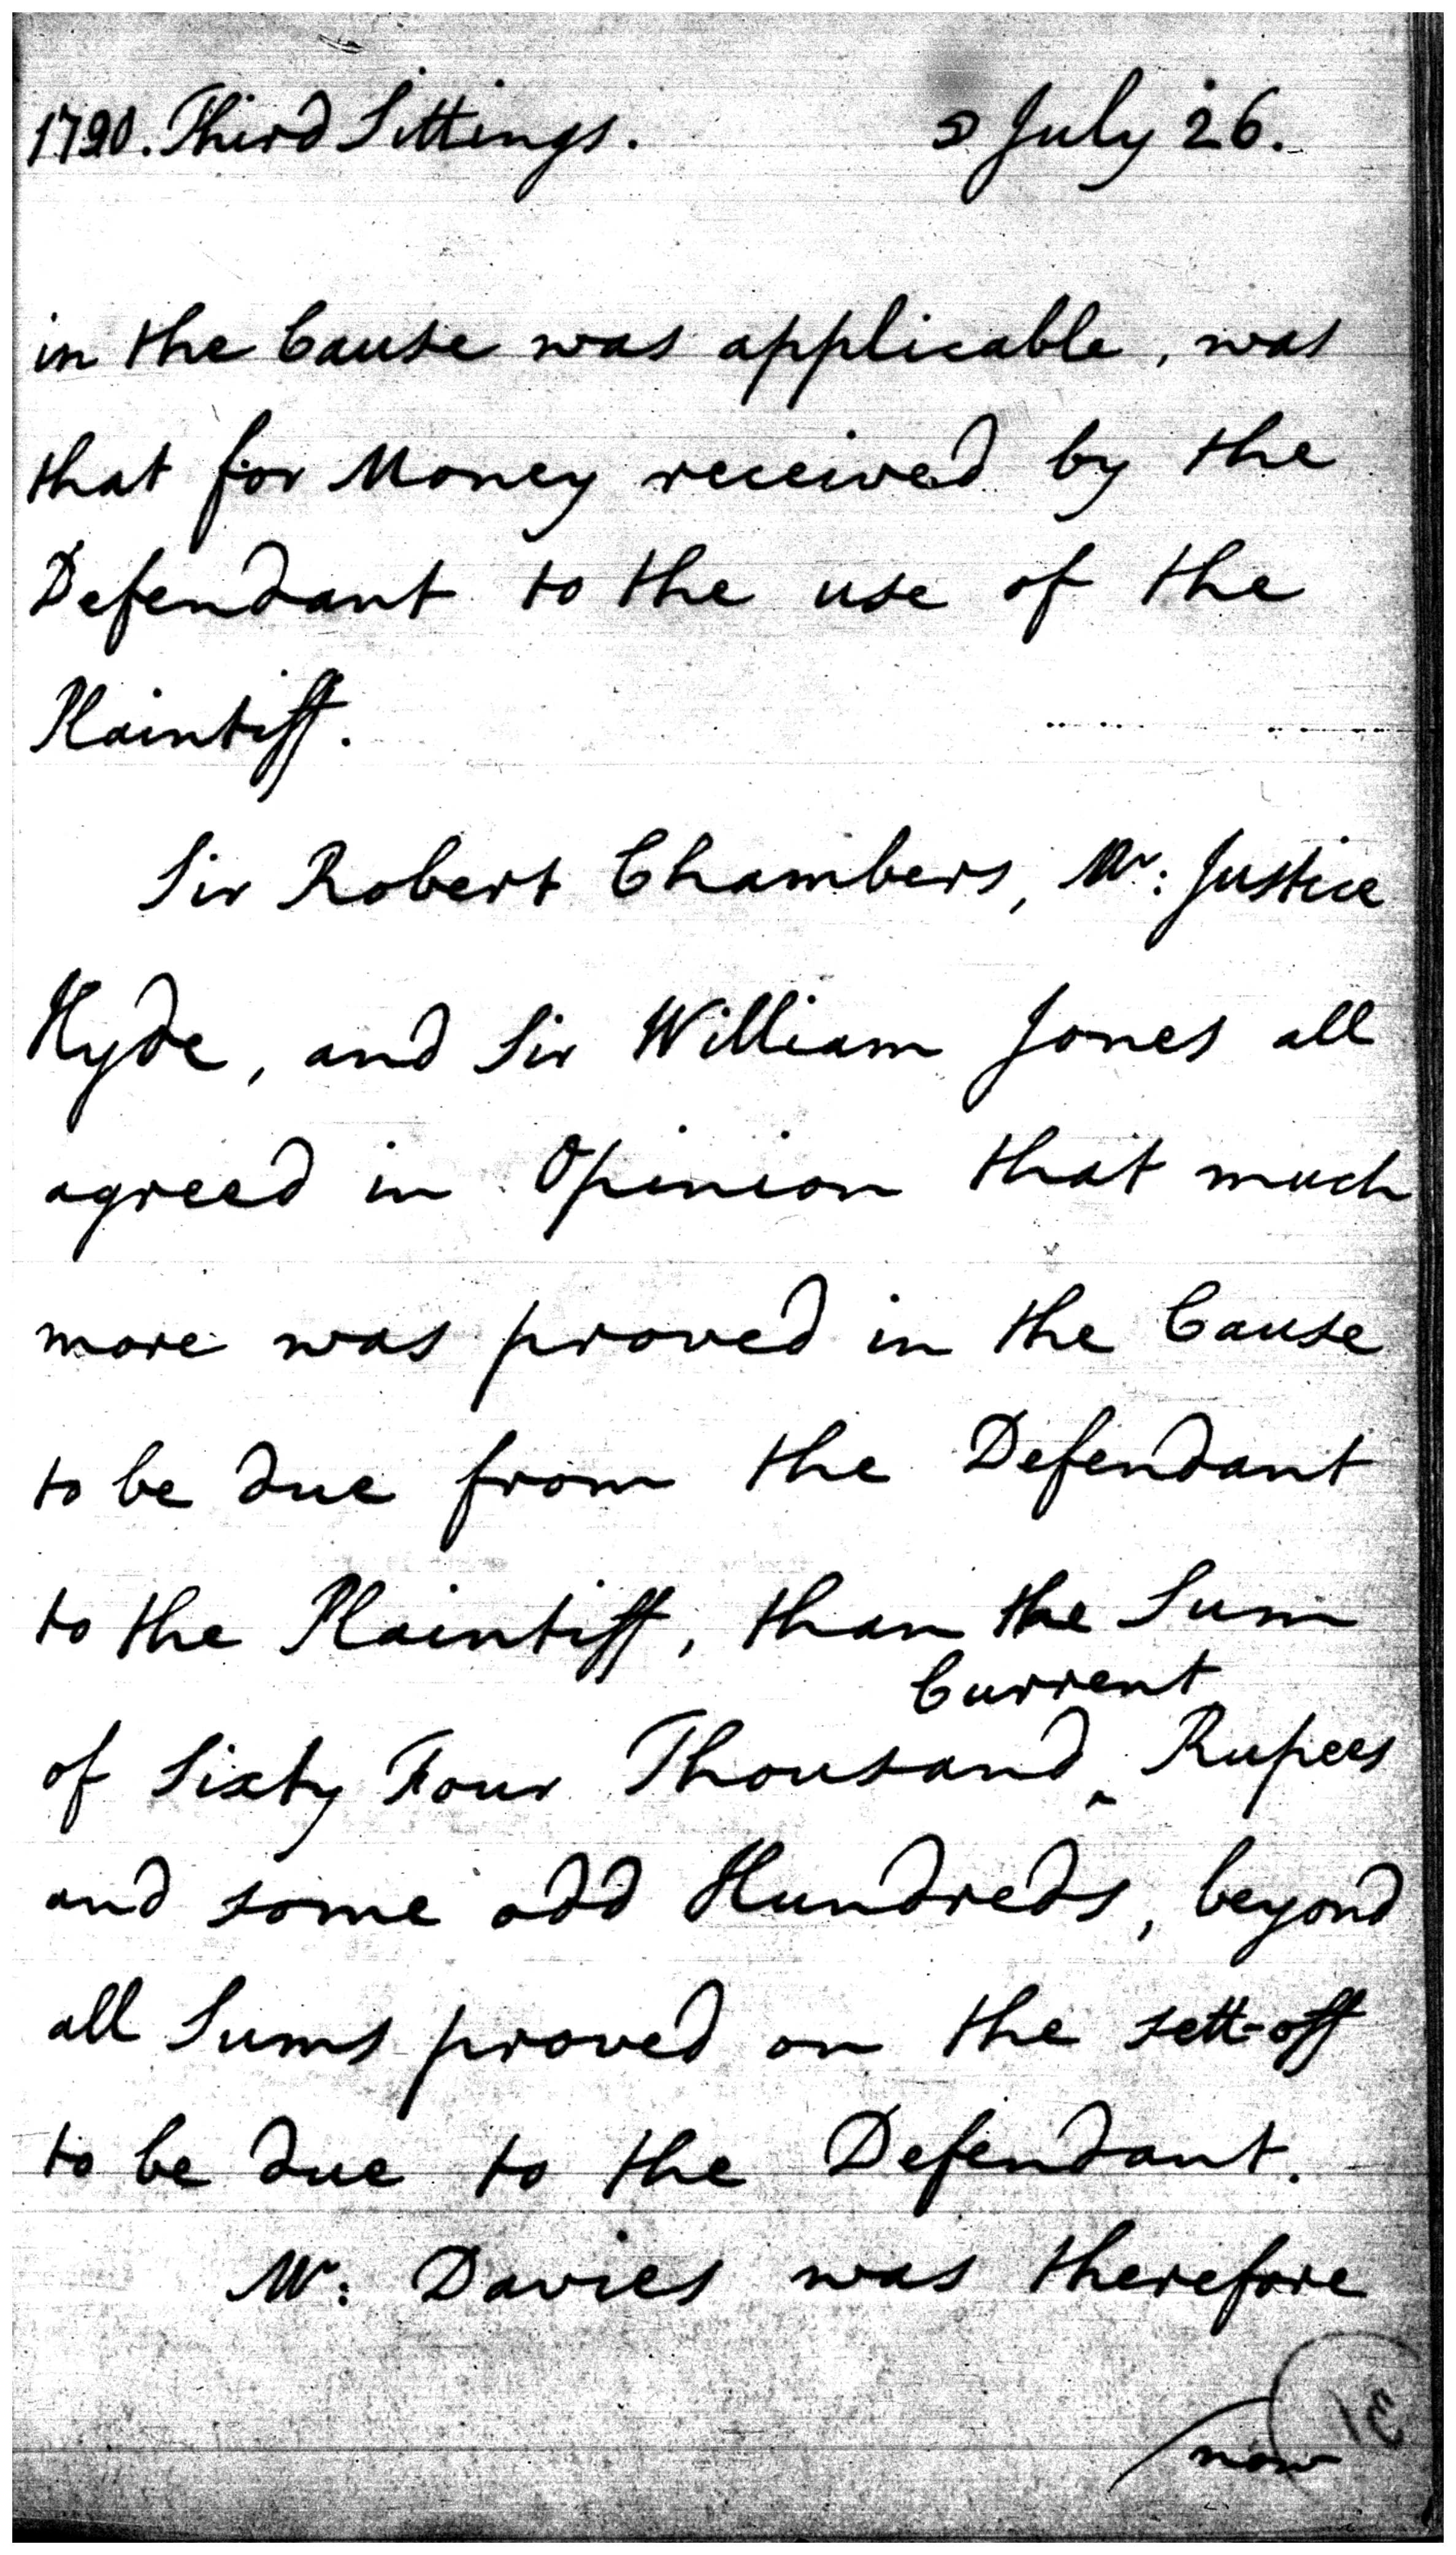 1790. Third Sittings. ☽ July 26.
in the Cause was applicable, was
that for Money received by the
Defendant to the use of the
Plaintiff.
Sir Robert Chambers, Mr: Justice
Hyde, and Sir William Jones all
agreed in Opinion that much
more was proved in the Cause
to be due from the Defendant
to the Plaintiff, than the Sum
Current
of Sixty Four Thousand ‸ Rupees
and some odd Hundreds, beyond
all Sums proved on the sett-off
to be due to the Defendant.
Mr: Davies was therefore
now